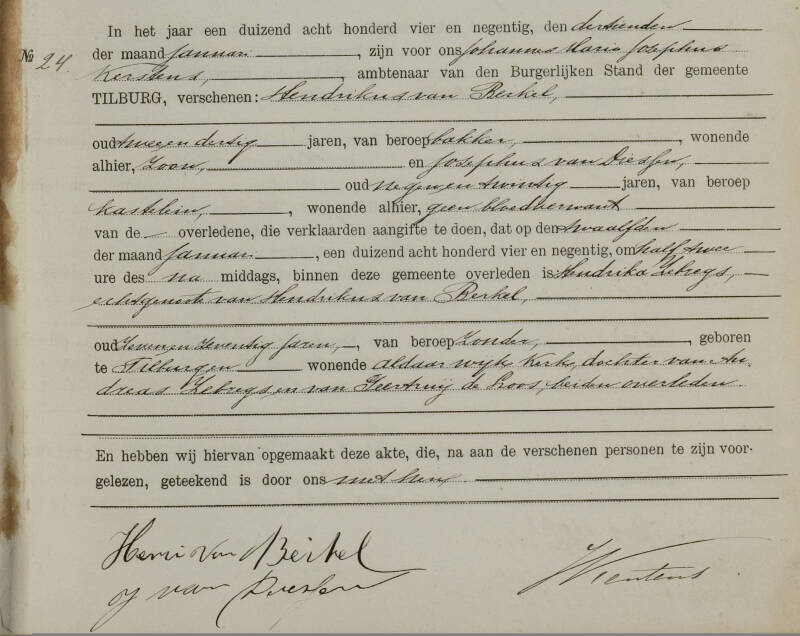 In het jaar een duizend acht honderd vier en negentig, den dertienden
No 24. der maand Januari, zijn voor ons Johannes Maria Josephus
Kerstens, ambtenaar van den Burgerlijken Stand der gemeente
TILBURG, verschenen: Hendrikus van Berkel,
oud twee en dertig jaren, van beroep bakker, wonende
alhier, Zoon, en Josephus van Diessen,
oud negen en twintig jaren, van beroep
kastelein, wonende alhier, geen bloedverwant
van de overledene, die verklaarden aangifte te doen, dat op den twaalfden
der maand Januari, een duizend acht honderd vier en negentig, om half twee
ure des na middags, binnen deze gemeente overleden is: Hendrika Zebregs,
echtgenoote van Hendrikus van Berkel,
oud zeven en zeventig jaren, van beroep zonder, geboren
te Tilburg en wonende aldaar wijk Kerk, dochter van An-
dreas Zebregs en van Geertruij de Loos, beiden overleden
En hebben wij hiervan opgemaakt deze akte, die, na aan de verschenen personen te zijn voor-
gelezen, geteekend is door ons met hen
Henri van Berkel
J van Diessen